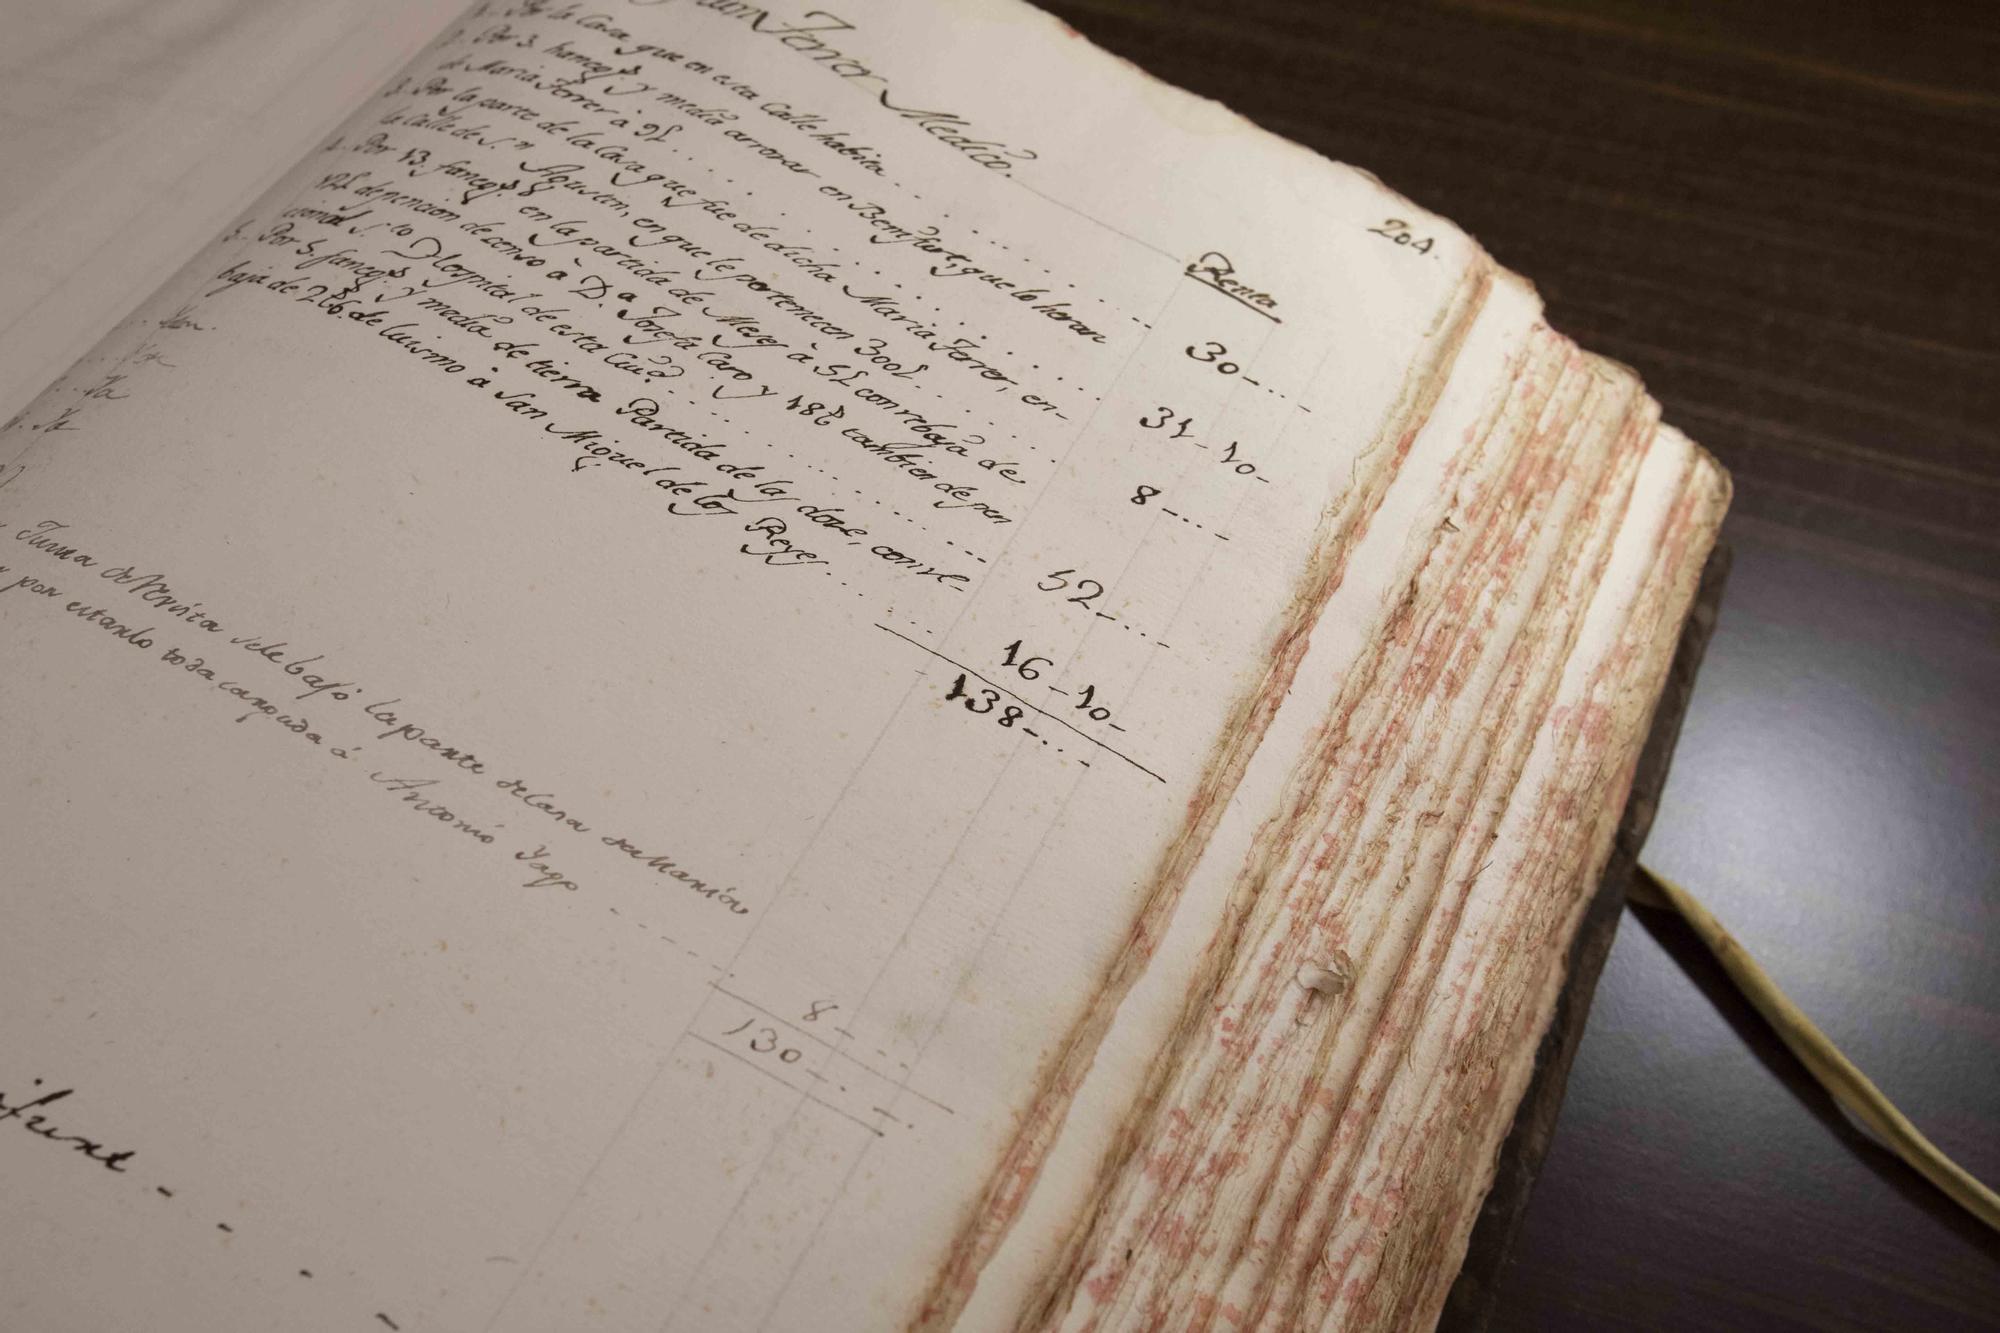 Ferrer Medico.
204.
Renta
1. Por la Casa que en esta Calle habita
30-
2. Por 3. hanegs. y media arrozar en Benifurt, que lo heran
de Maria Ferrer à 9L
31-10-
3. Por la parte de la Casa que fue de dicha Maria Ferrer, en
la Calle de S.n Agustin, en que le pertenecen 300L
8-
4. Por 13. fanegs. en la partida de Meses à 5L con rebaja de
12L de pencion de censo à D.a Josefa Caro y 18 tambien de pen
cion al S.to Ospital de esta Ciud.
52-
5. Por 5. fanegs. y media de tierra Partida de las dotze, con re-
baja de de luismo à San Miguel de los Reyes
16-10-
138-
Suma de Renita sele bajó la parte de la casa
por estarlo toda cargada á Antonio Yago
8-
130-